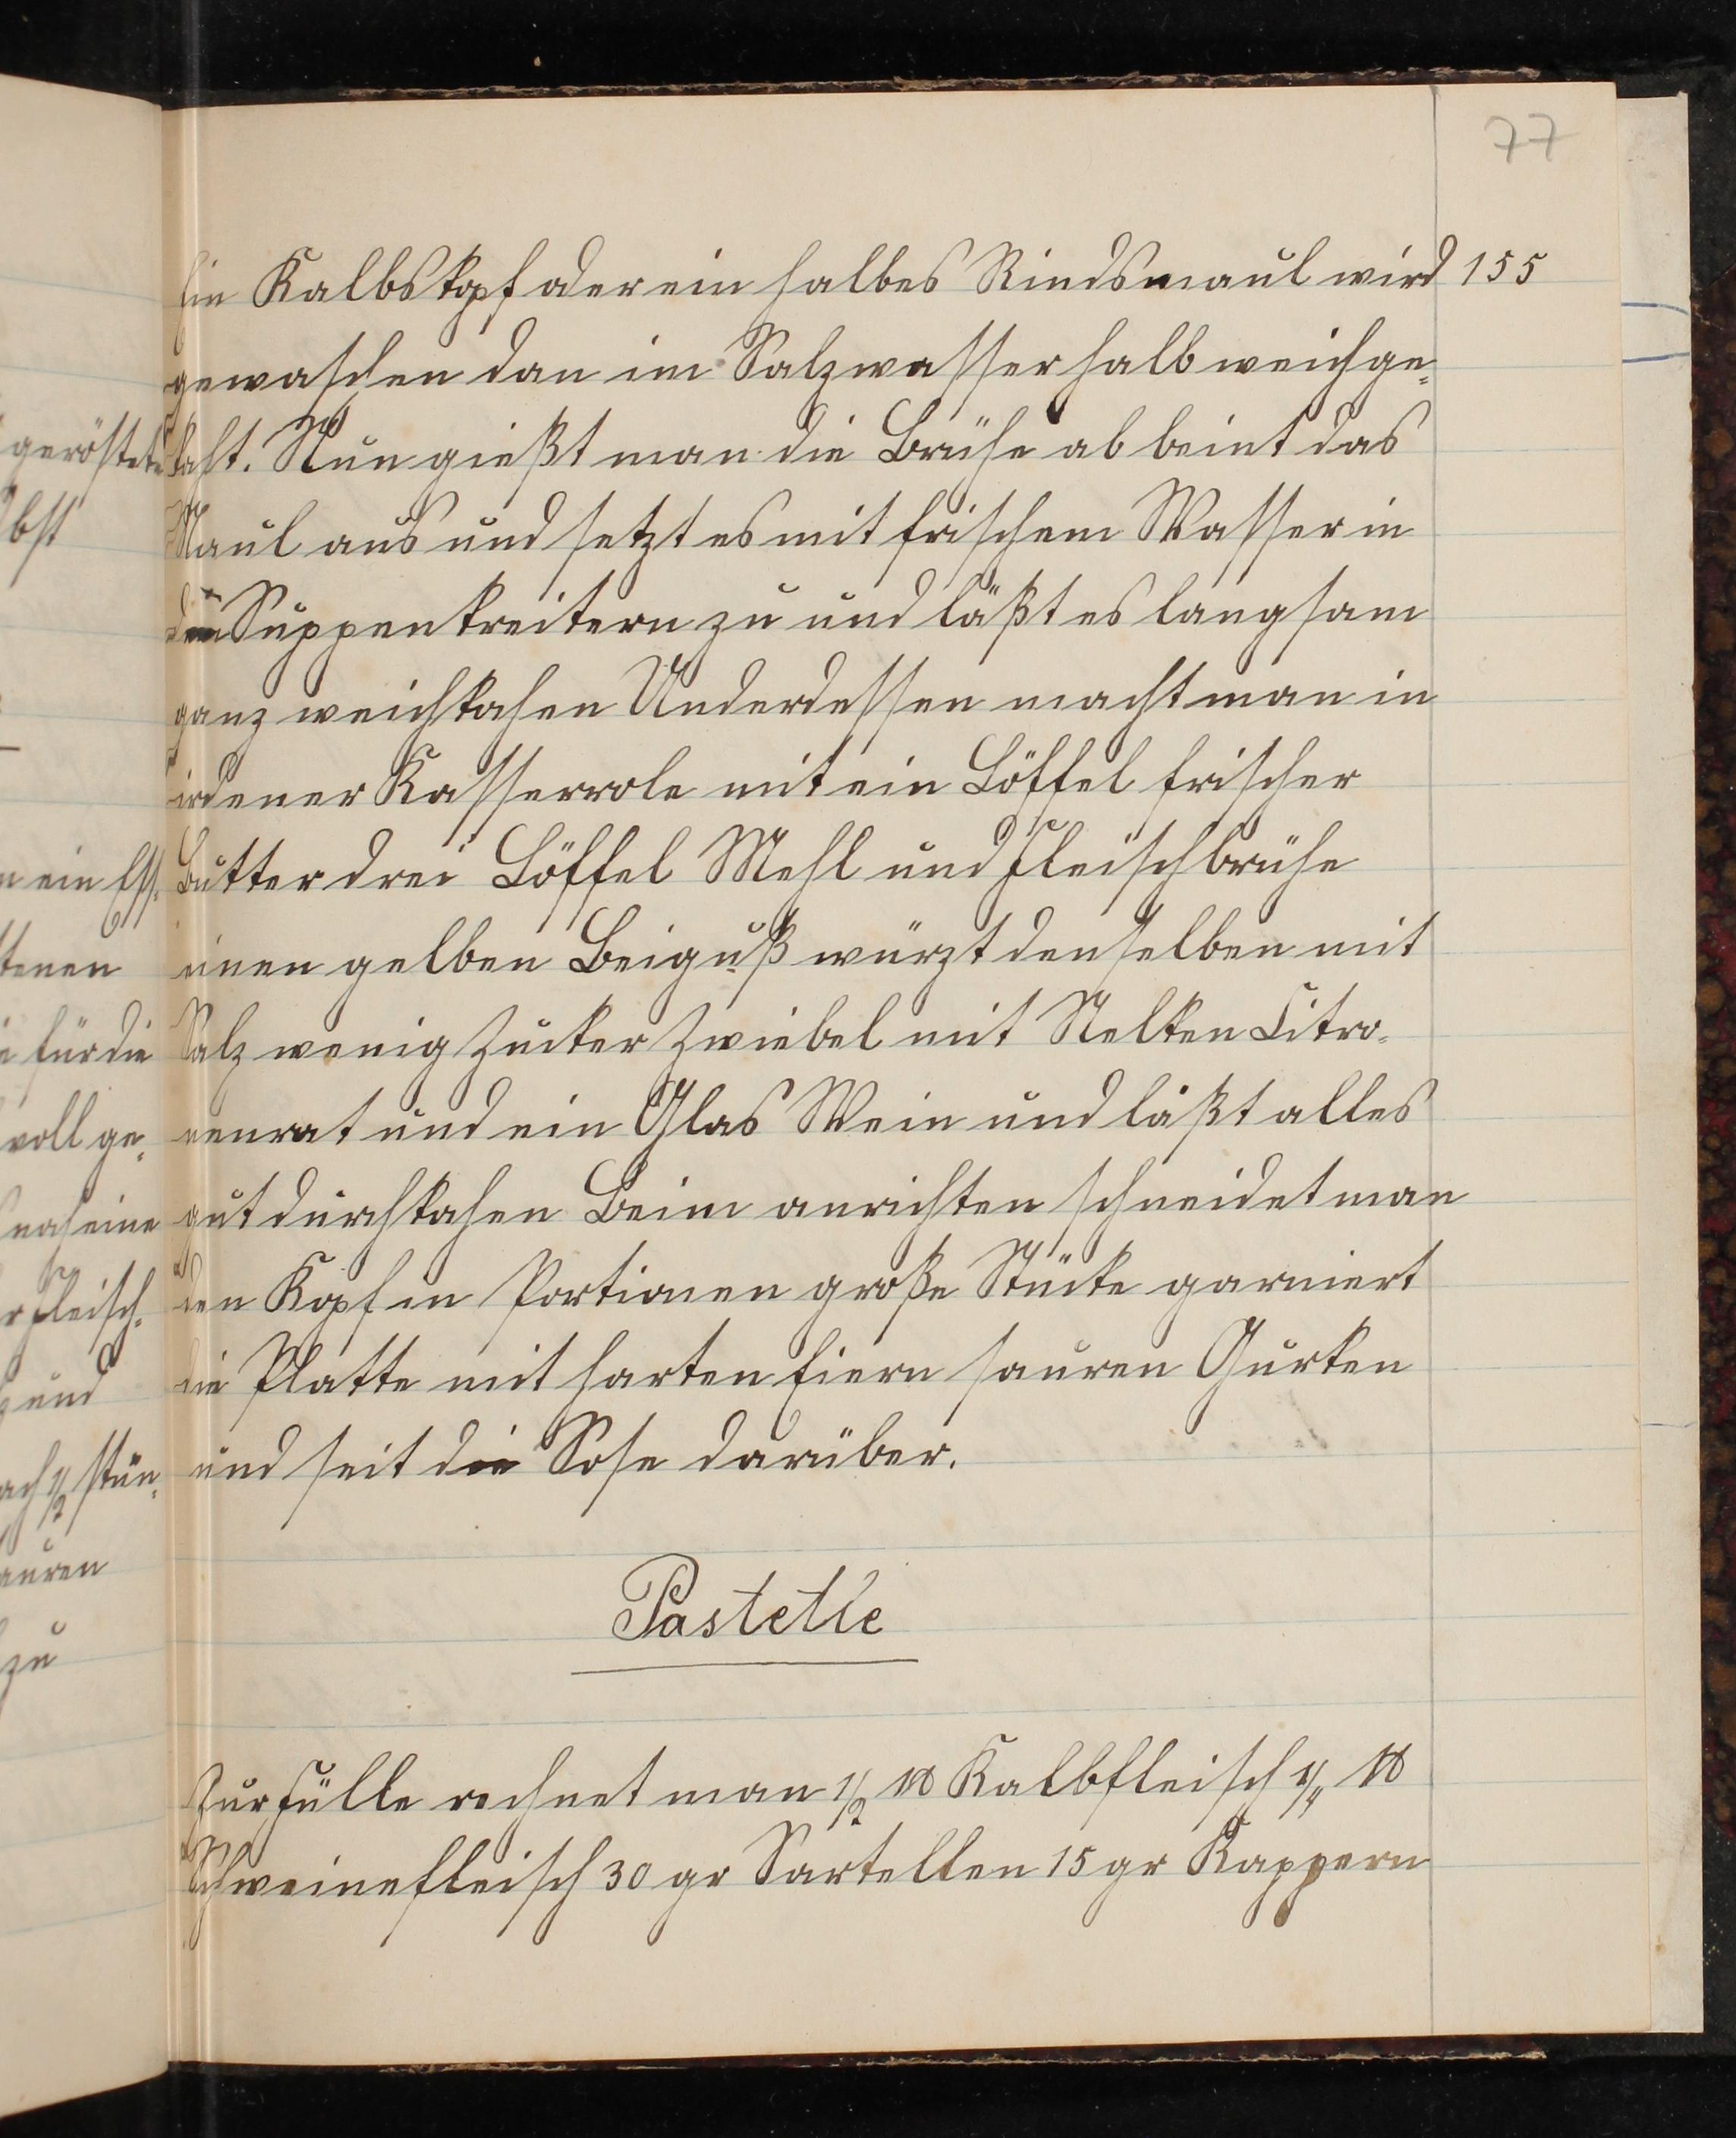 77
Ein Kalbskopf oder ein halbes Rindsmaul wird 155
gewaschen dan im Salzwasser halb weichge=
kocht. Nun gießt man die Brühe ab beint das
Maul aus und setzt es mit frischem Wasser in
den Suppenkreitern zu und läßt es langsam
ganz weichkochen Underdessen macht man in
irdener Kasserrole mit ein Löffel frischer
Butter drei Löffel Mehl und Fleischbrühe
einen gelben Beiguß würzt denselben mit
Salz wenig Zucker Zwiebel mit Nelken Citro=
nenrat und ein Glas Wein und läßt alles
gut durchkochen Beim anrichten schneidet man
den Kopf in Portionen große Stücke garniert
die Platte mit harten Eiern sauren Gurken
und seit die Sose darüber.
Pastetle
Zur Fülle rechnet man 1/2 ℔ Kalbfleisch 1/4 ℔
Schweinefleisch 30 gr Sartellen 15 gr Kappern